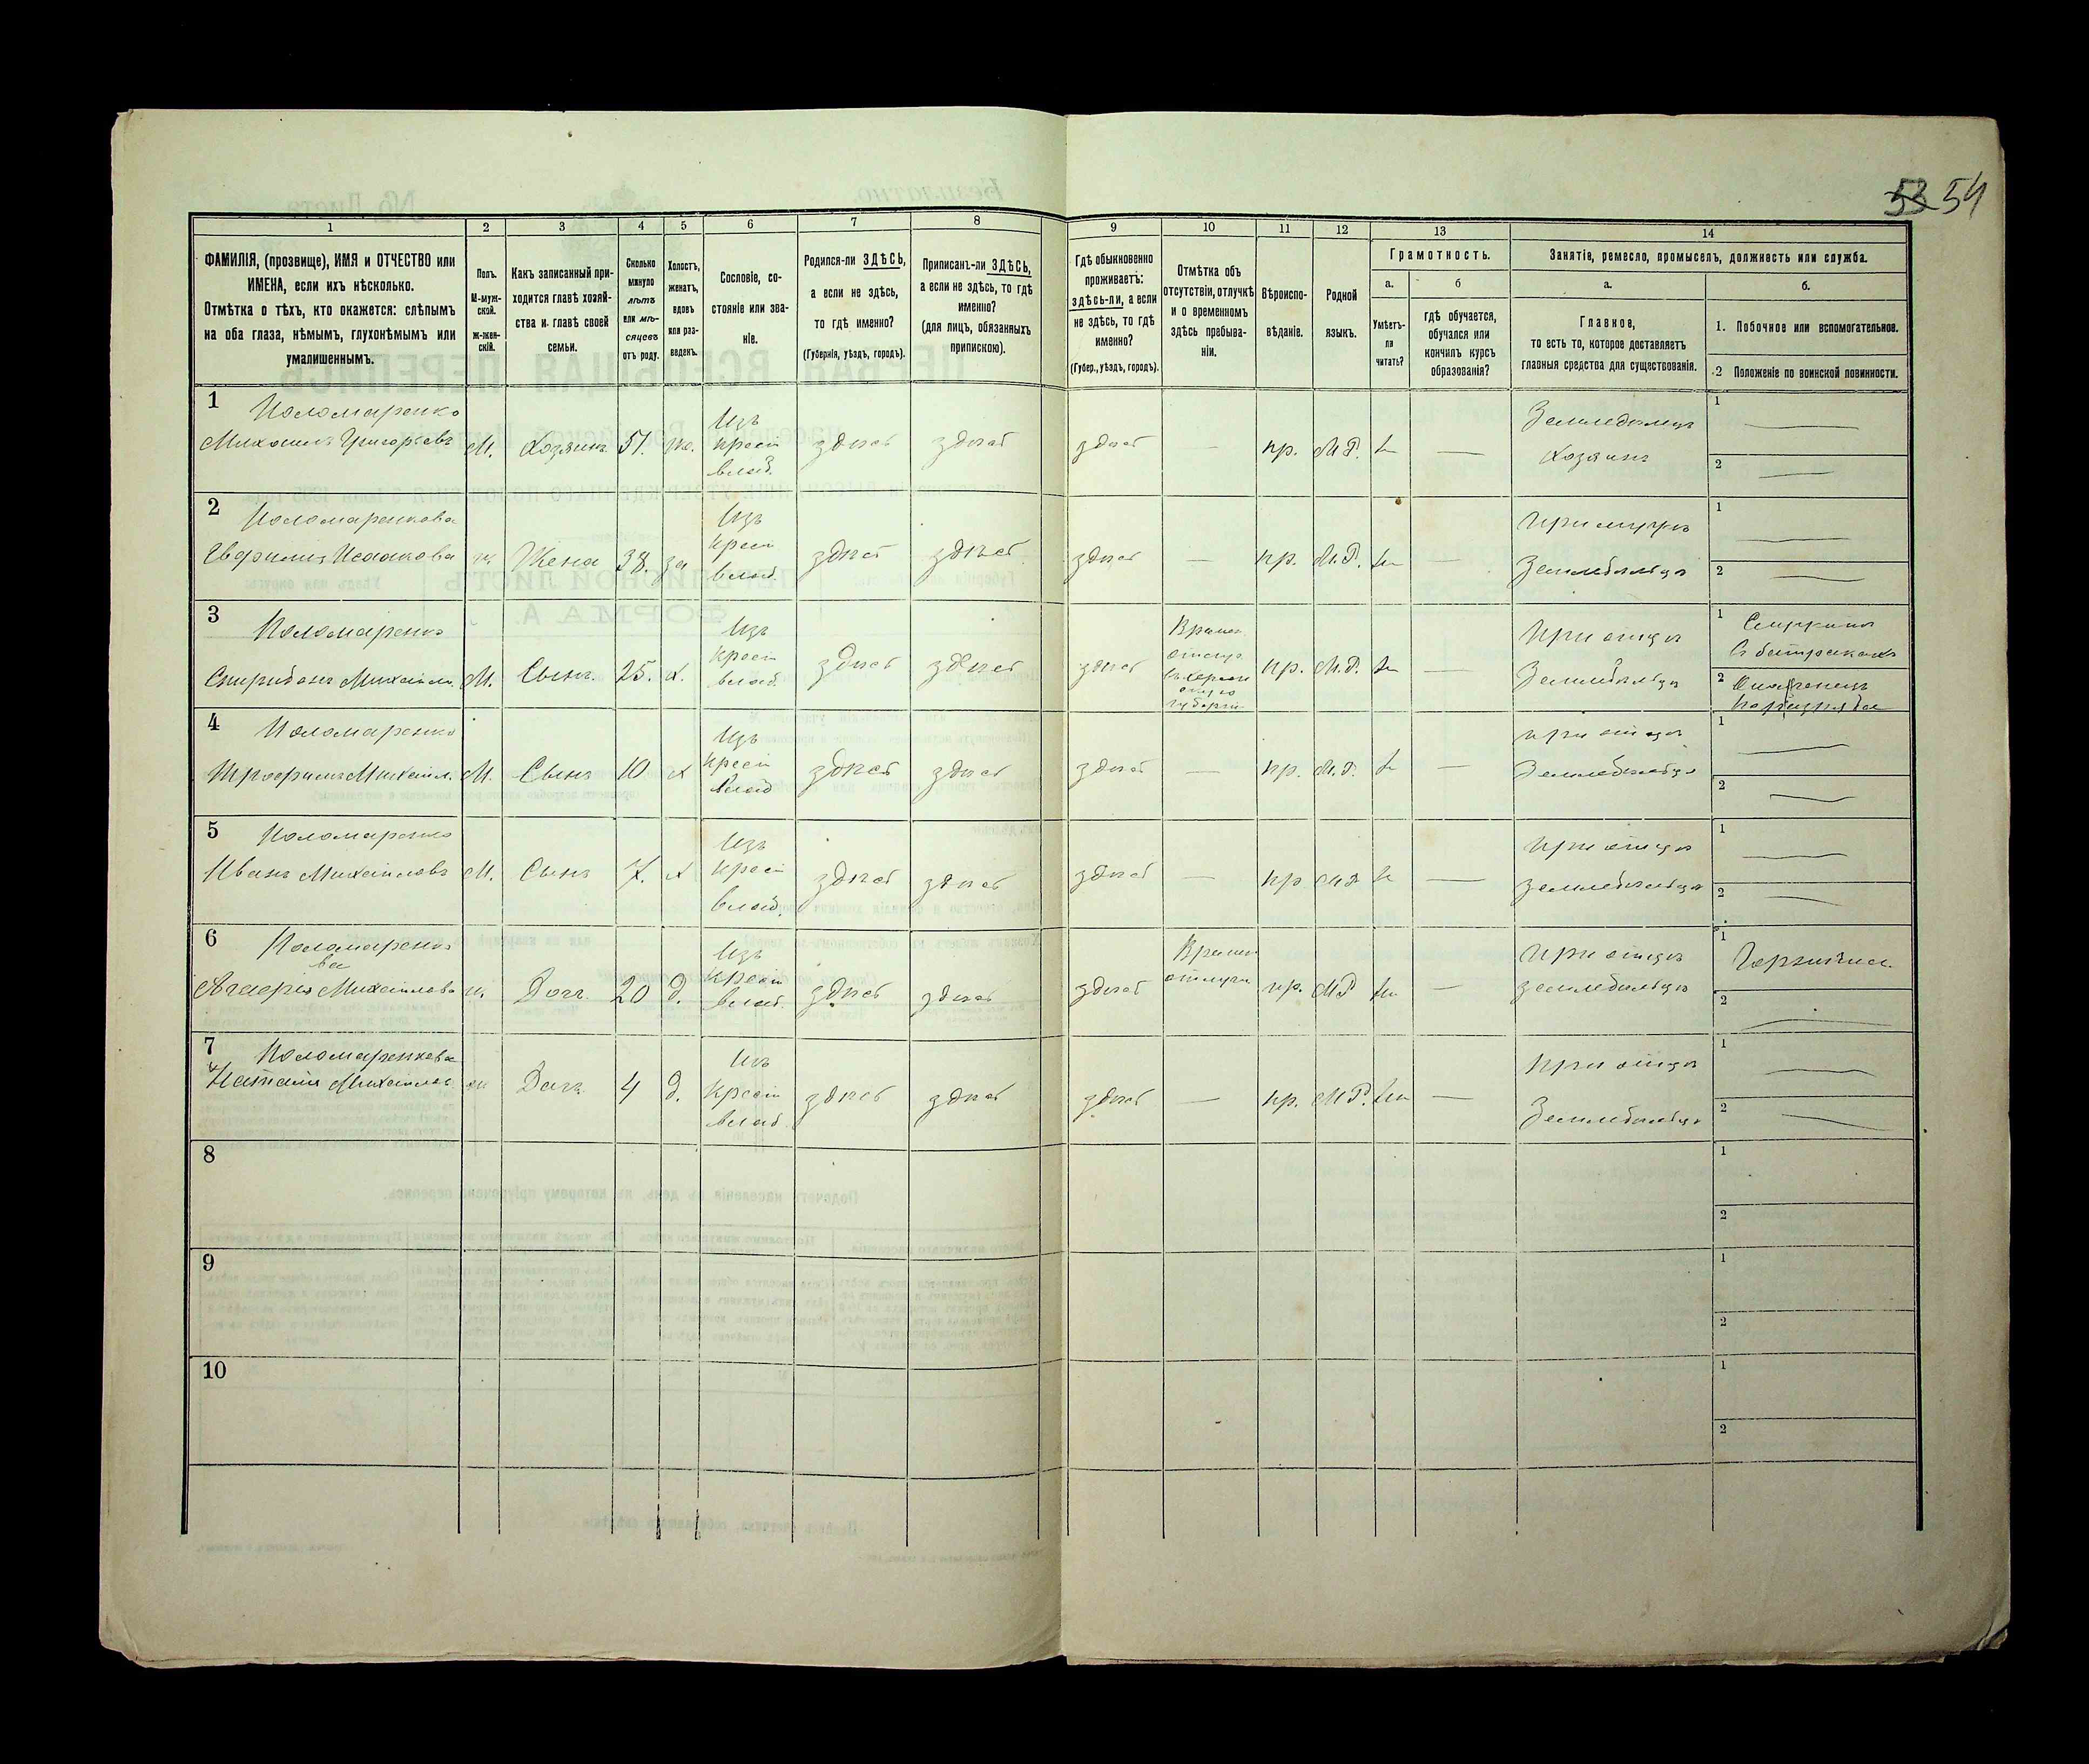 53 54
1
2
3
4
5
6
7
8
9
10
11
12
13
14
ФАМИЛІЯ, (прозвище), ИМЯ и ОТЧЕСТВО или
ИМЕНА, если ихъ нѣсколько.
Отмѣтка о тѣхъ, кто окажется: слѣпымъ
на оба глаза, нѣмымъ, глухонѣмымъ или
умалишеннымъ.
Полъ.
М-муж-
ской.
ж-жен-
скій.
Какъ записанный при-
ходится главѣ хозяй-
ства и главѣ своей
семьи.
Сколько
минуло
лѣтъ
или мѣ-
сяцевъ
отъ роду.
Холостъ,
женатъ,
вдовъ
или раз-
веденъ.
Сословіе, со-
стояніе или зва-
ніе.
Родился-ли ЗДѢСЬ,
а если не здѣсь,
то гдѣ именно?
(Губернія, уѣздъ, городъ).
Приписанъ-ли ЗДѢСЬ,
а если не здѣсь, то гдѣ
именно?
(для лицъ, обязанныхъ
припискою).
Гдѣ обыкновенно
проживаетъ:
здѣсь-ли, а если
не здѣсь, то гдѣ
именно?
(Губер., уѣздъ, городъ).
Отмѣтка объ
отсутствіи, отлучкѣ
и о временномъ
здѣсь пребыва-
ніи.
Вѣроиспо-
вѣданіе.
Родной
языкъ.
Грамотность.
а.
б
Умѣетъ-
ли
читать?
гдѣ обучается,
обучался или
кончилъ курсъ
образованія?
Занятіе, ремесло, промыселъ, должность или служба.
а.
б.
Главное,
то есть то, которое доставляетъ
главныя средства для существованія.
1. Побочное или вспомогательное.
2 Положеніе по воинской повинности.
1 Поломаренко
Михаилъ Григорьевъ
М.
Хозяинъ
51.
же.
Изъ
крест
влад.
здѣсь
здѣсь
здѣсь
—
пр.
М.Р.
—
Земледѣлецъ
Хозяинъ
1 —
2 —
2 Поломаренкова
Евфимия Исаакова
ж
Жена
38.
за
Изъ
крест
влад.
здѣсь
здѣсь
здѣсь
—
пр.
М.Р.
—
При мужѣ
Земледѣльцѣ
1 —
2 —
3 Поломаренко
Спиридонъ Михаил.
М.
Сынъ.
25.
х.
Изъ
крест
влад.
здѣсь
здѣсь
здѣсь
Времен
губерніи
пр.
М.Р.
—
При отцѣ
Земледѣльцѣ
1
въ батракахъ
2 Ополченецъ
4 Поломаренко
Трофимъ Михаил.
М.
Сынъ
10
х
Изъ
крест
влад
здѣсь
здѣсь
здѣсь
—
пр.
М.Р.
—
при отцѣ
Земледѣльцѣ
1 —
2 —
5 Поломаренко
Иванъ Михайловъ
М.
Сынъ
7.
х
Изъ
крест
влад.
здѣсь
здѣсь
здѣсь
—
пр
М.Р
—
При отцѣ
земледѣльцѣ
1 —
2 —
6 Поломаренко
ва
Михаилова
ж.
Дочь
20
д.
Изъ
крест
влад.
здѣсь
здѣсь
здѣсь
Времен
отлучк
пр.
МР
—
При отцѣ
земледѣльцѣ
1
2 —
7 Поломаренкова
Наталія Михаилов.
ж
Дочь
4
д.
Изъ
крест
влад.
здѣсь
здѣсь
здѣсь
—
пр.
М.Р.
—
При отцѣ
Земледѣльцѣ
1 —
2 —
8
1
2
9
1
2
10
1
2